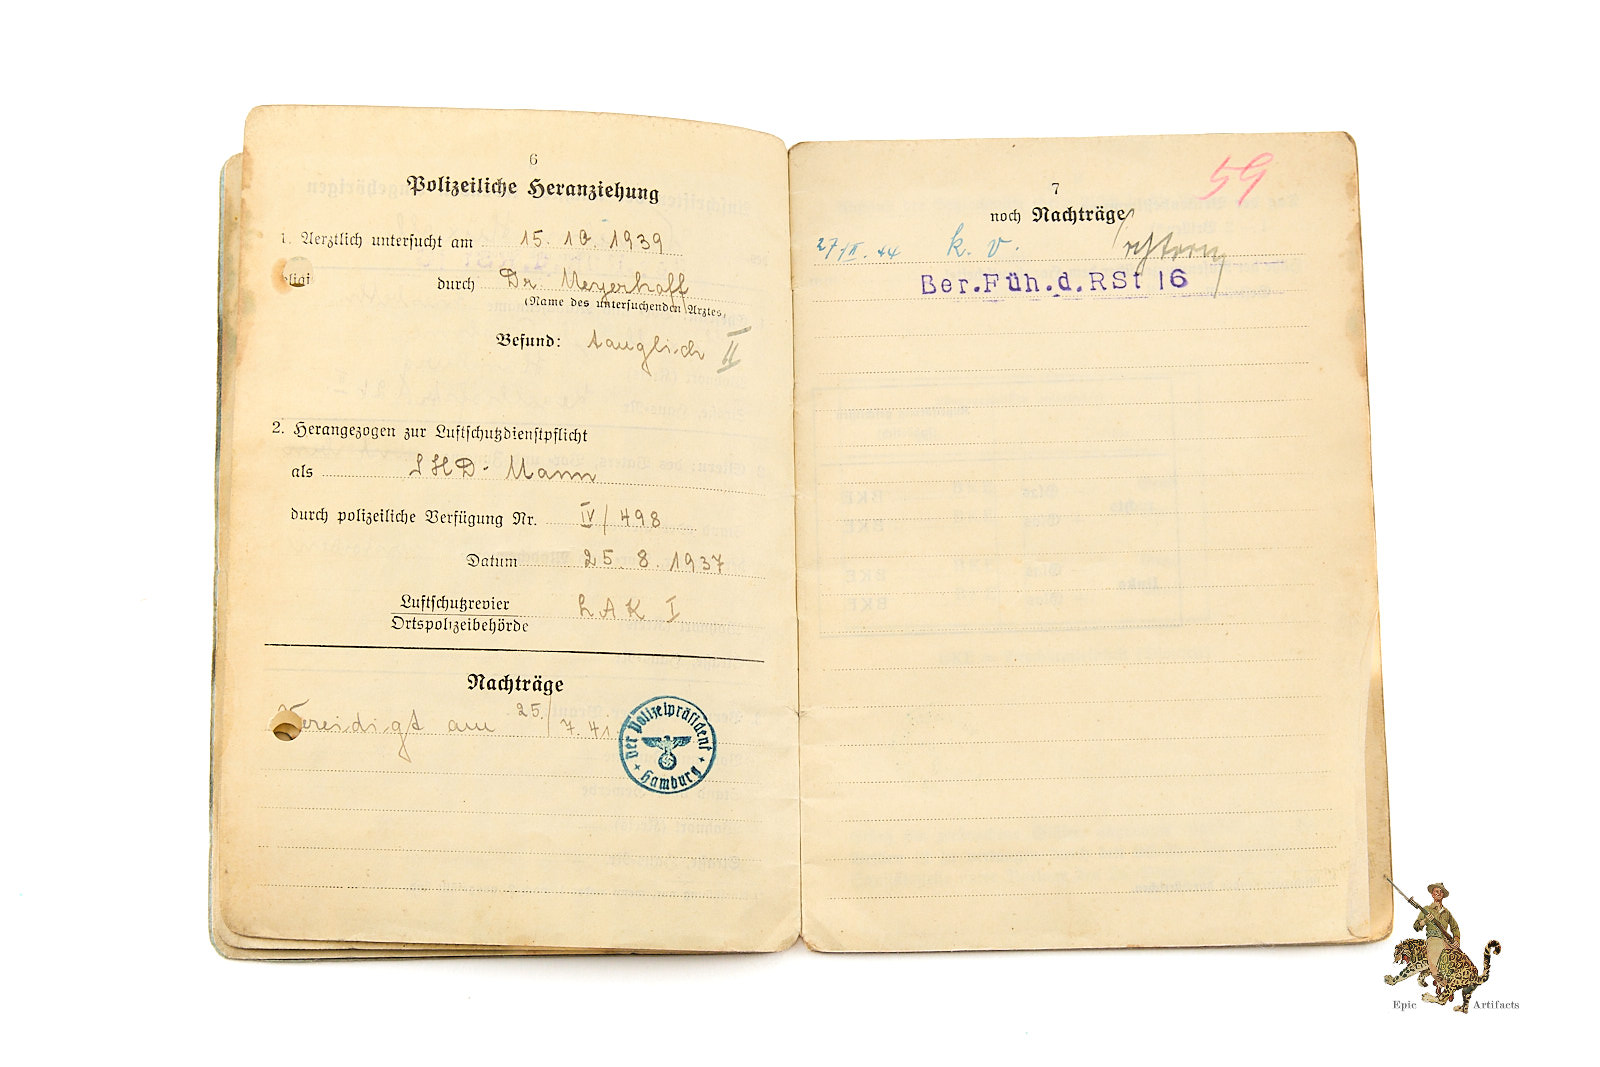 6
Polizeiliche Heranziehung
1. Aerztlich untersucht am 15. 10. 1939
durch Dr. Meyerhoff
(Name des untersuchenden Arztes)
Befund: tauglich II
2. Herangezogen zur Luftschutzdienstpflicht
als SHD-Mann
durch polizeiliche Verfügung Nr. IV/498
Datum 25. 8. 1937
Luftschutzrevier LAK I
Ortspolizeibehörde
Nachträge
Vereidigt am 25./7.41.
der Polizeipräsident
Hamburg
59
7
noch Nachträge
k. v.
Ber.Füh.d.RSt 16
Epic Artifacts